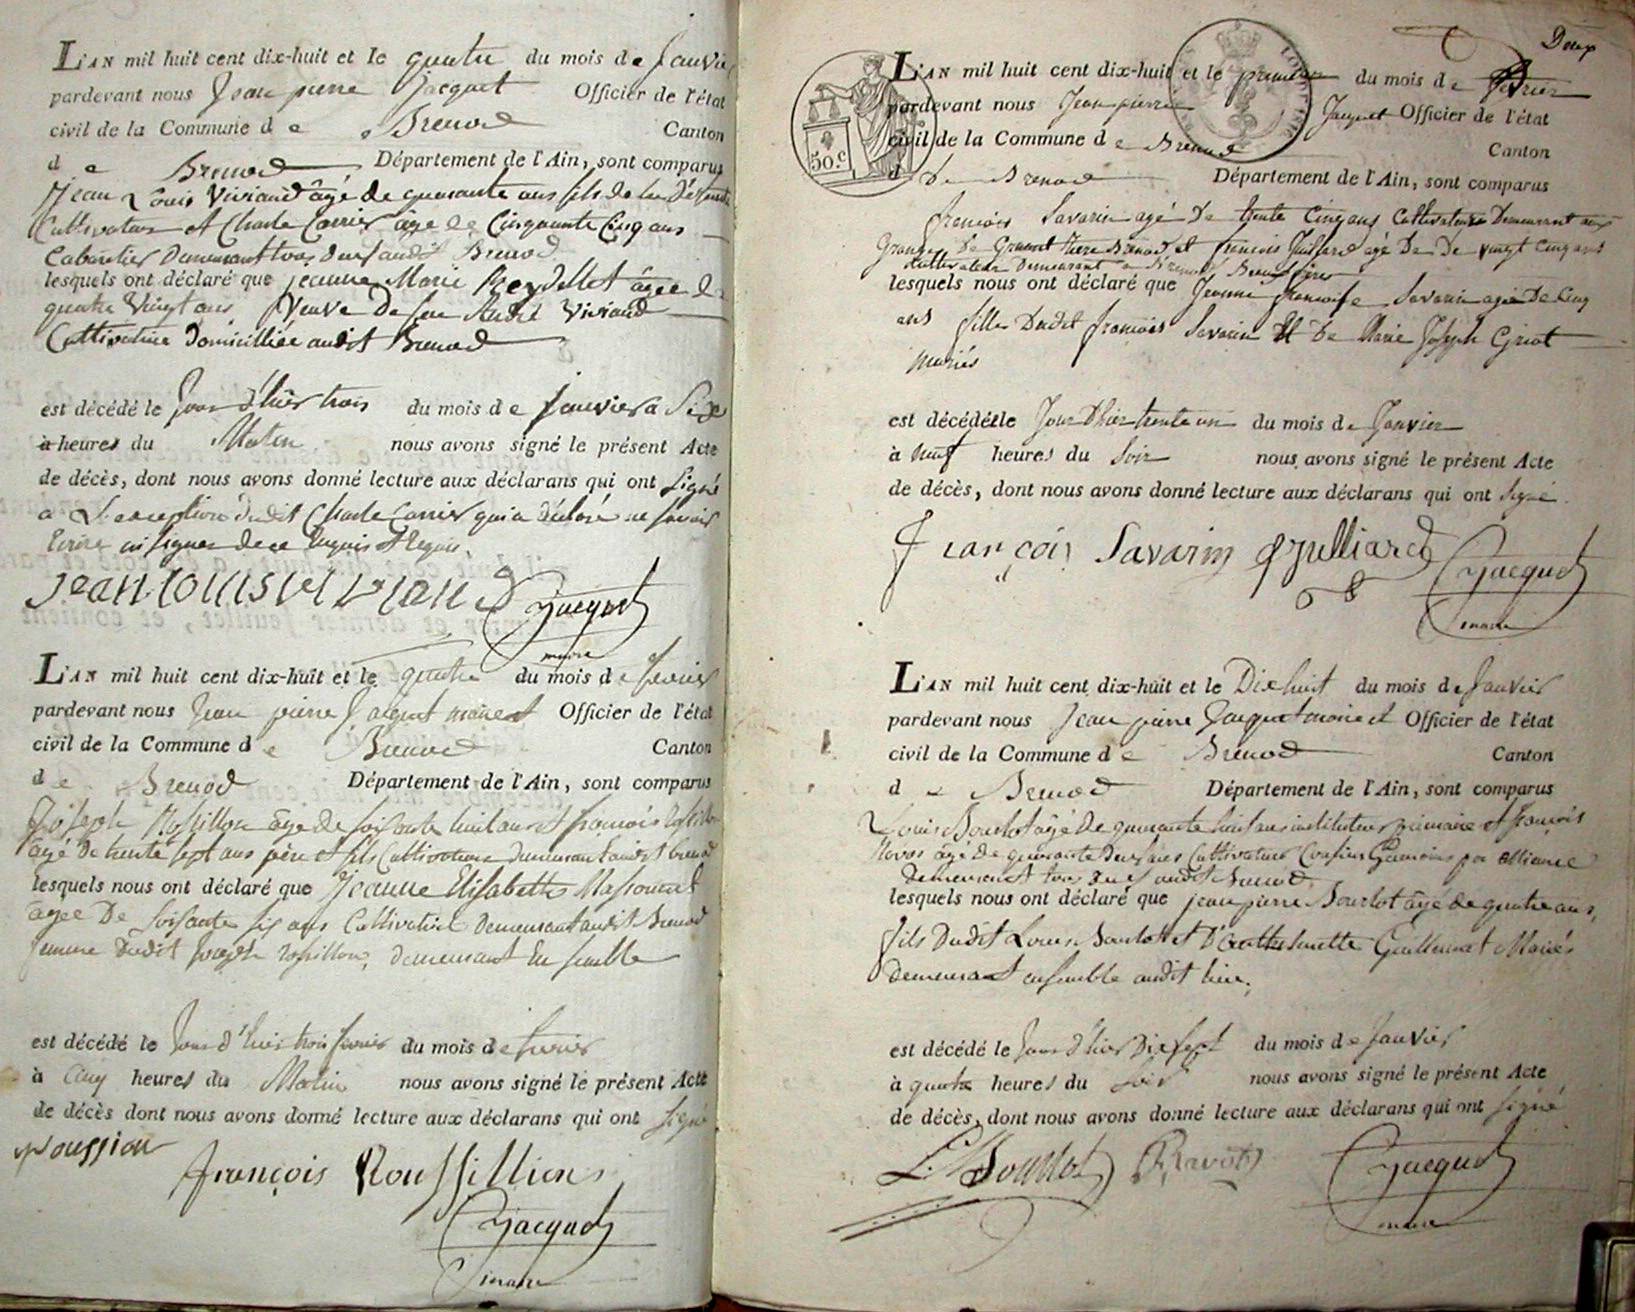 L'AN mil huit cent dix-huit et le quatre du mois de Janvier
pardevant nous Jean pierre Jacquet Officier de l'état
civil de la Commune de Brenod Canton
de Brenod Département de l'Ain, sont comparus
Jean Louis Viviand âgé de quarante ans fils de la
Cultivateur et Charle Carrier âgé de Cinquante Cinq ans
Cabaretier Demeurant tous deux audit Brenod
lesquels ont déclaré que jeanne Marie Reydellet âgée de
quatre Vingt ans Veuve De feu André Viviand
Cultivatrice Domicilliée audit Brenod
est décédé le Jour d'hier trois du mois de janvier a Six
à heures du Matin nous avons signé le présent Acte
de décès, dont nous avons donné lecture aux déclarans qui ont Signé
a L'exception dudit Charle Carrier qui a déclaré ne savoir
Ecrire ni signer de ce Enquis et Requis.
Jean Louis Viviand Jacquet
maire
L'AN mil huit cent dix-huit et le quatre du mois de fevrier
pardevant nous Jean pierre Jacquet maire et Officier de l'état
civil de la Commune de Brenod Canton
de Brenod Département de l'Ain, sont comparus
Joseph Rossillon âge de soissante huit ans et francois
âgé de trente sept ans père et fils Cultivateurs Demeurant audit Brenod
lesquels nous ont déclaré que Jeanne Elisabette Massonnet
âgee De Soissante six ans Cultivatrice Demeurant audit Brenod
femme Dudit Joseph rossillon, demeurant En semble
est décédé le Jour d'hier trois fevrier du mois de fevrier
à Cinq heures du Matin nous avons signé le présent Acte
de décès dont nous avons donné lecture aux déclarans qui ont signé
françois Roussillion
Jacquet
maire
Deux
50.c
L'AN mil huit cent dix-huit et le premier du mois de fevrier
pardevant nous Jean pierre Jacquet Officier de l'état
civil de la Commune de Brenod Canton
d De Brenod Département de l'Ain, sont comparus
françois Savarin agé De trente Cinq ans Cultivateur Demeurant aux
Granges De et françois Juillard agé De De vingt Cinq ans
Cultivateur Demeurant a Brenod
lesquels nous ont déclaré que Jeanne françoise Savarin agée De Cinq
ans fille Dudit françois Savarin Et De Marie Joseph Griot
mariés
est décédé le Jour D'hier trente un du mois de Janvier
à neuf heures du Soir nous avons signé le présent Acte
de décès, dont nous avons donné lecture aux déclarans qui ont Signé.
François Savarin Julliard Jacquet
maire
L'AN mil huit cent dix-huit et le Dix huit du mois de Janvier
pardevant nous Jean pierre Jacquet maire et Officier de l'état
civil de la Commune de Brenod Canton
de Brenod Département de l'Ain, sont comparus
Louis Bourlot âgé de quarante huit ans instituteur primaire et françois
Ravos âgé de quarante Deux ans Cultivateur Cousins Germains par alliance
demeurant tous Deux audit Brenod
lesquels nous ont déclaré que jean pierre Bourlot âgé de quatre ans,
fils Dudit Louis Bourlot et D' Guillermet Mariés
demeurant ensemble audit lieu.
est décédé le Jour d'hier Dix sept du mois de Janvier
à quatre heures du Soir nous avons signé le présent Acte
de décès, dont nous avons donné lecture aux déclarans qui ont signé
L. Bourlot Ravot Jacquet
maire